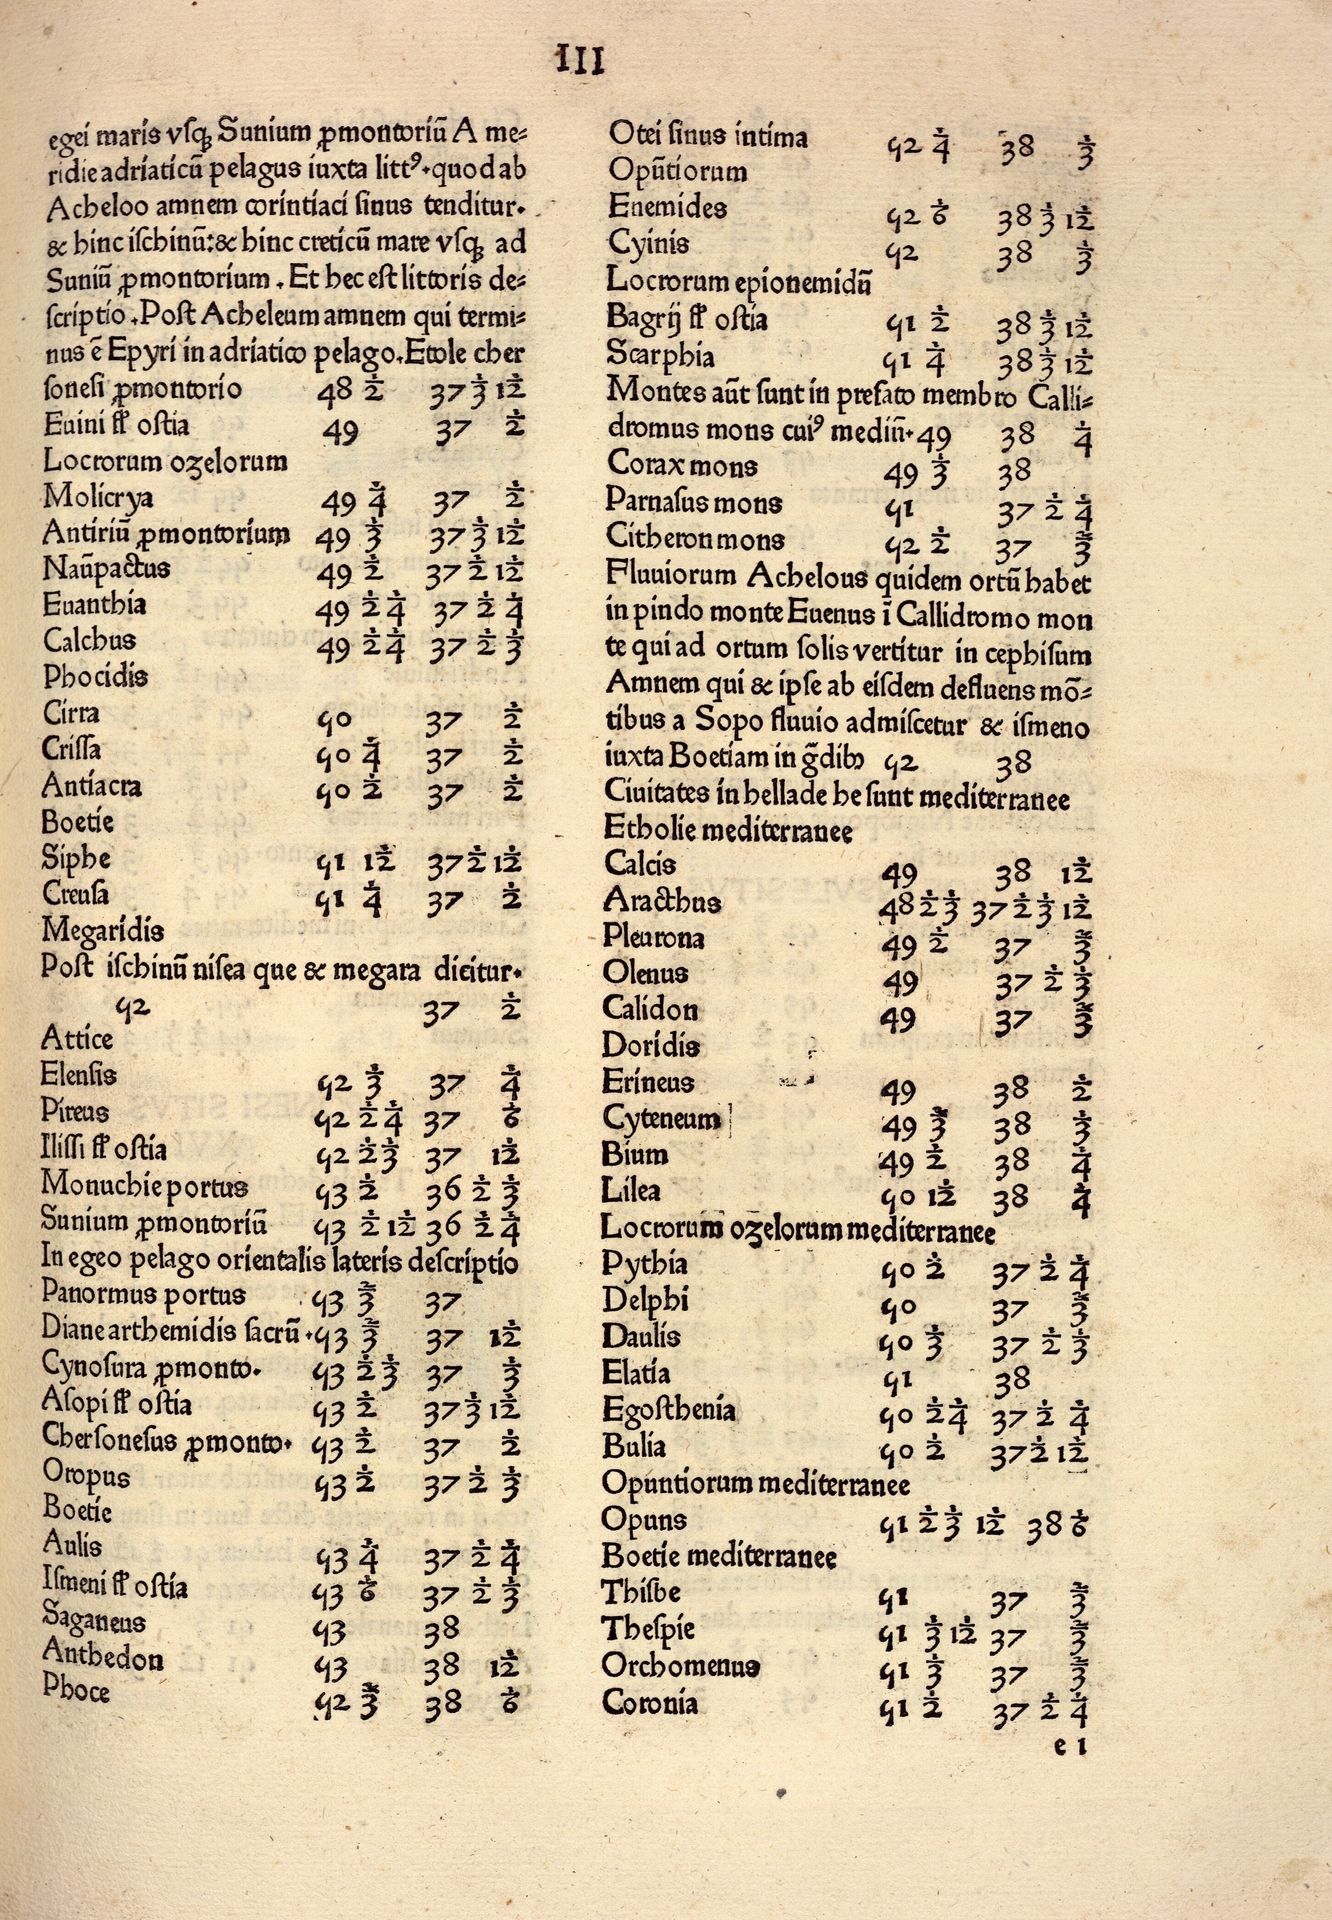 III
egei maris vsqꝫ Sunium ꝓmontoriũ A me⸗
ridie adriaticũ pelagus iuxta littꝰ.quod ab
Acheloo amnem corintiaci sinus tenditur.
& hinc ischinũ:& hinc creticũ mare vsqꝫ ad
Suniũ ꝓmontorium . Et hec est littoris de⸗
scriptio .Post Acheleum amnem qui termi⸗
nus ẽ Epyri in adriatico pelago.Etole cher
sonesi ꝓmontorio 48 ½ 37 ⅓ 1/12
Euini fł ostia 49 37 ½
Locrorum ozelorum
Molicrya 49 ¼ 37 ½
Antiriũ ꝓmontorium 49 ⅓ 37 ⅓ 1/12
Naũpactus 49 ½ 37 ½ 1/12
Euanthia 49 ½ ¼ 37 ½ ¼
Calchus 49 ½ ¼ 37 ½ ⅓
Phocidis
Cirra 50 37 ½
Crissa 50 ¼ 37 ½
Antiacra 50 ½ 37 ½
Boetie
Siphe 51 1/12 37 ½ 1/12
Creusa 51 ¼ 37 ½
Megaridis
Post ischinũ nisea que & megara dicitur.
52 37 ½
Attice
Elensis 52 ⅓ 37 ¼
Pireus 52 ½ ¼ 37 ⅙
Ilissi fł ostia 52 ½ ⅓ 37 1/12
Monuchie portus 53 ½ 36 ½ ⅓
Sunium ꝓmontoriũ 53 ½ 1/12 36 ½ ¼
In egeo pelago orientalis lateris descriptio
Panormus portus 53 ⅔ 37
Diane arthemidis sacrũ .53 ⅔ 37 1/12
Cynosura ꝓmonto. 53 ½ ⅓ 37 ⅓
Asopi fł ostia 53 ½ 37 ⅓ 1/12
Chersonesus ꝓmonto. 53 ½ 37 ½
Oropus 53 ½ 37 ½ ⅓
Boetie
Aulis 53 ¼ 37 ½ ¼
Ismeni fł ostia 53 ⅙ 37 ½ ⅓
Saganeus 53 38
Anthedon 53 38 1/12
Phoce 52 ⅔ 38 ⅙
Otei sinus intima 52 ¼ 38 ⅓
Opũtiorum
Enemides 52 ⅙ 38 ⅓ 1/12
Cyinis 52 38 ⅓
Locrorum epionemidũ
Bagrij fł ostia 51 ½ 38 ⅓ 1/12
Scarphia 51 ¼ 38 ⅓ 1/12
Montes aũt sunt in prefato membro Calli⸗
dromus mons cuiꝰ mediũ.49 38 ¼
Corax mons 49 ⅓ 38
Parnasus mons 51 37 ½ ¼
Citheron mons 52 ½ 37 ⅔
Fluuiorum Achelous quidem ortũ habet
in pindo monte Euenus ĩ Callidromo mon
te qui ad ortum solis vertitur in cephisum
Amnem qui & ipse ab eisdem defluens mõ⸗
tibus a Sopo fluuio admiscetur & ismeno
iuxta Boetiam in g̃dibꝫ 52 38
Ciuitates in hellade he sunt mediterranee
Etholie mediterranee
Calcis 49 38 1/12
Aracthus 48 ½ ⅓ 37 ½ ⅓ 1/12
Pleurona 49 ½ 37 ⅔
Olenus 49 37 ½ ⅓
Calidon 49 37 ⅔
Doridis
Erineus 49 38 ½
Cyteneum 49 ⅔ 38 ⅓
Bium 49 ½ 38 ¼
Lilea 50 1/12 38 ¼
Locrorum ozelorum mediterranee
Pythia 50 ½ 37 ½ ¼
Delphi 50 37 ⅔
Daulis 50 ⅓ 37 ½ ⅓
Elatia 51 38
Egosthenia 50 ½ ¼ 37 ½ ¼
Bulia 50 ½ 37 ½ 1/12
Opuntiorum mediterranee
Opuns 51 ½ ⅓ 1/12 38 ⅙
Boetie mediterranee
Thisbe 51 37 ⅔
Thespie 51 ⅓ 1/12 37 ⅔
Orchomenus 51 ⅓ 37 ⅔
Coronia 51 ½ 37 ½ ¼
e 1